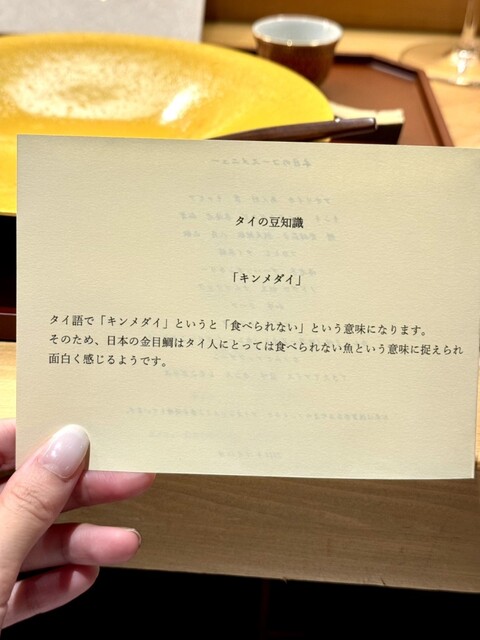 タイの豆知識
「キンメダイ」
タイ語で「キンメダイ」というと「食べられない」という意味になります。
そのため、日本の金目鯛はタイ人にとっては食べられない魚という意味に捉えられ
面白く感じるようです。